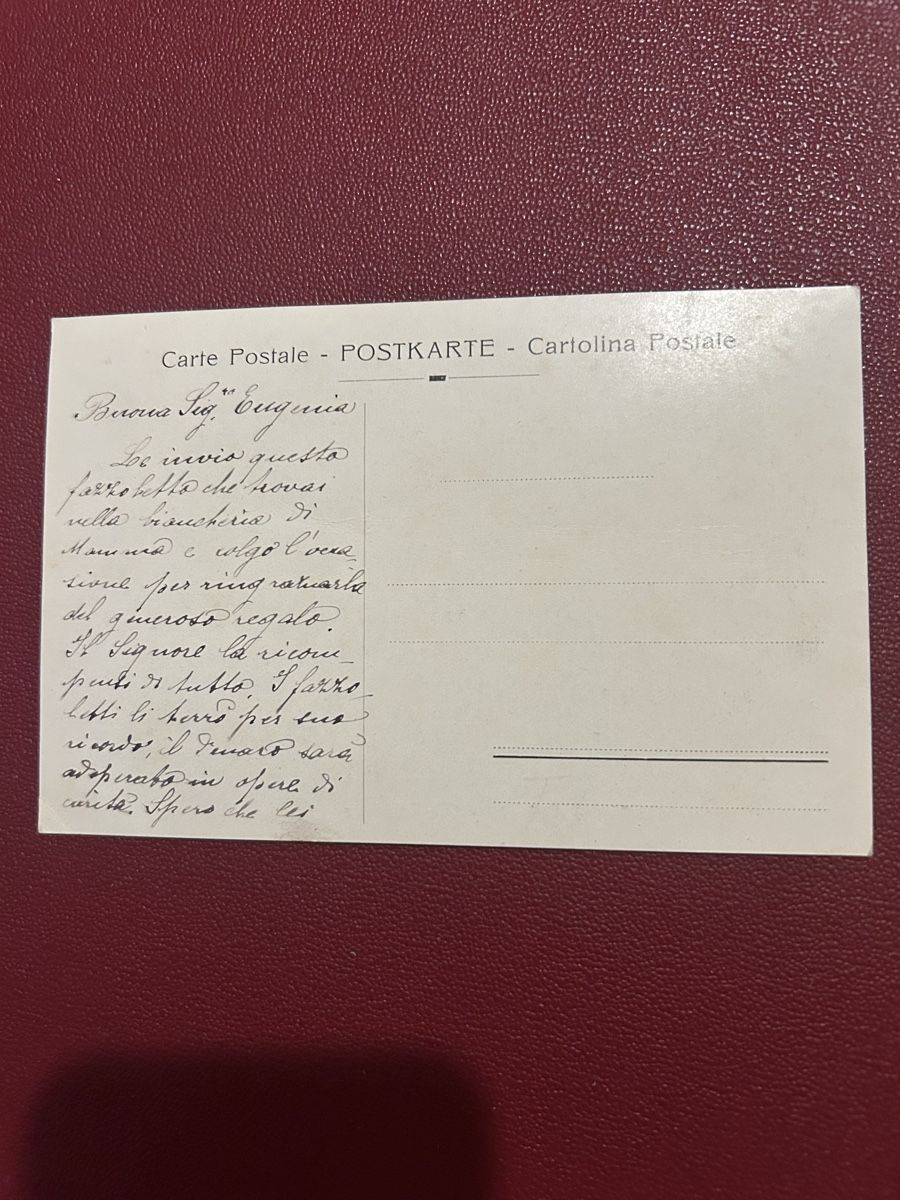 Carte Postale - POSTKARTE - Cartolina Postale
Buona Sig.ra Eugenia
Le invio questo
fazzoletto che trovai
nella biancheria di
Mamma e colgo l'occa_
sione per ringraziarla
del generoso regalo.
Il Signore la ricom_
pensi di tutto. I fazzo_
letti li terrò per suo
ricordo, il denaro sarà
adoperato in opere di
carità. Spero che lei